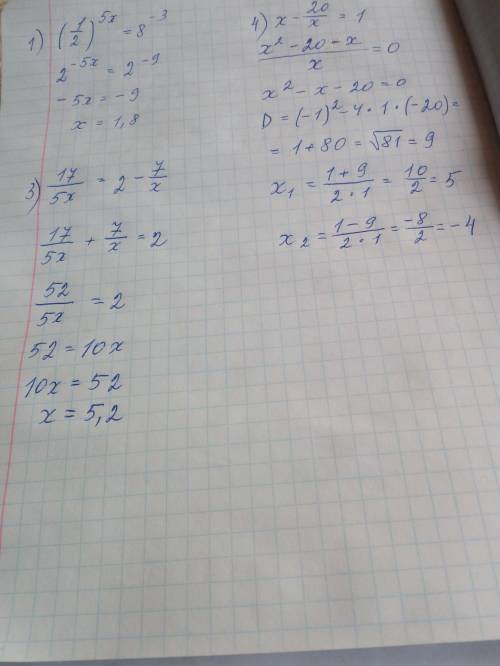 1) (1/2)^5x = 8^-3
2^-5x = 2^-9
-5x = -9
x = 1,8
3) 17/5x = 2 - 7/x
17/5x + 7/x = 2
52/5x = 2
52 = 10x
10x = 52
x = 5,2
4) x - 20/x = 1
x² - 20 - x / x = 0
x² - x - 20 = 0
D = (-1)² - 4 · 1 · (-20) =
= 1 + 80 = √81 = 9
x₁ = 1+9/2·1 = 10/2 = 5
x₂ = 1-9/2·1 = -8/2 = -4